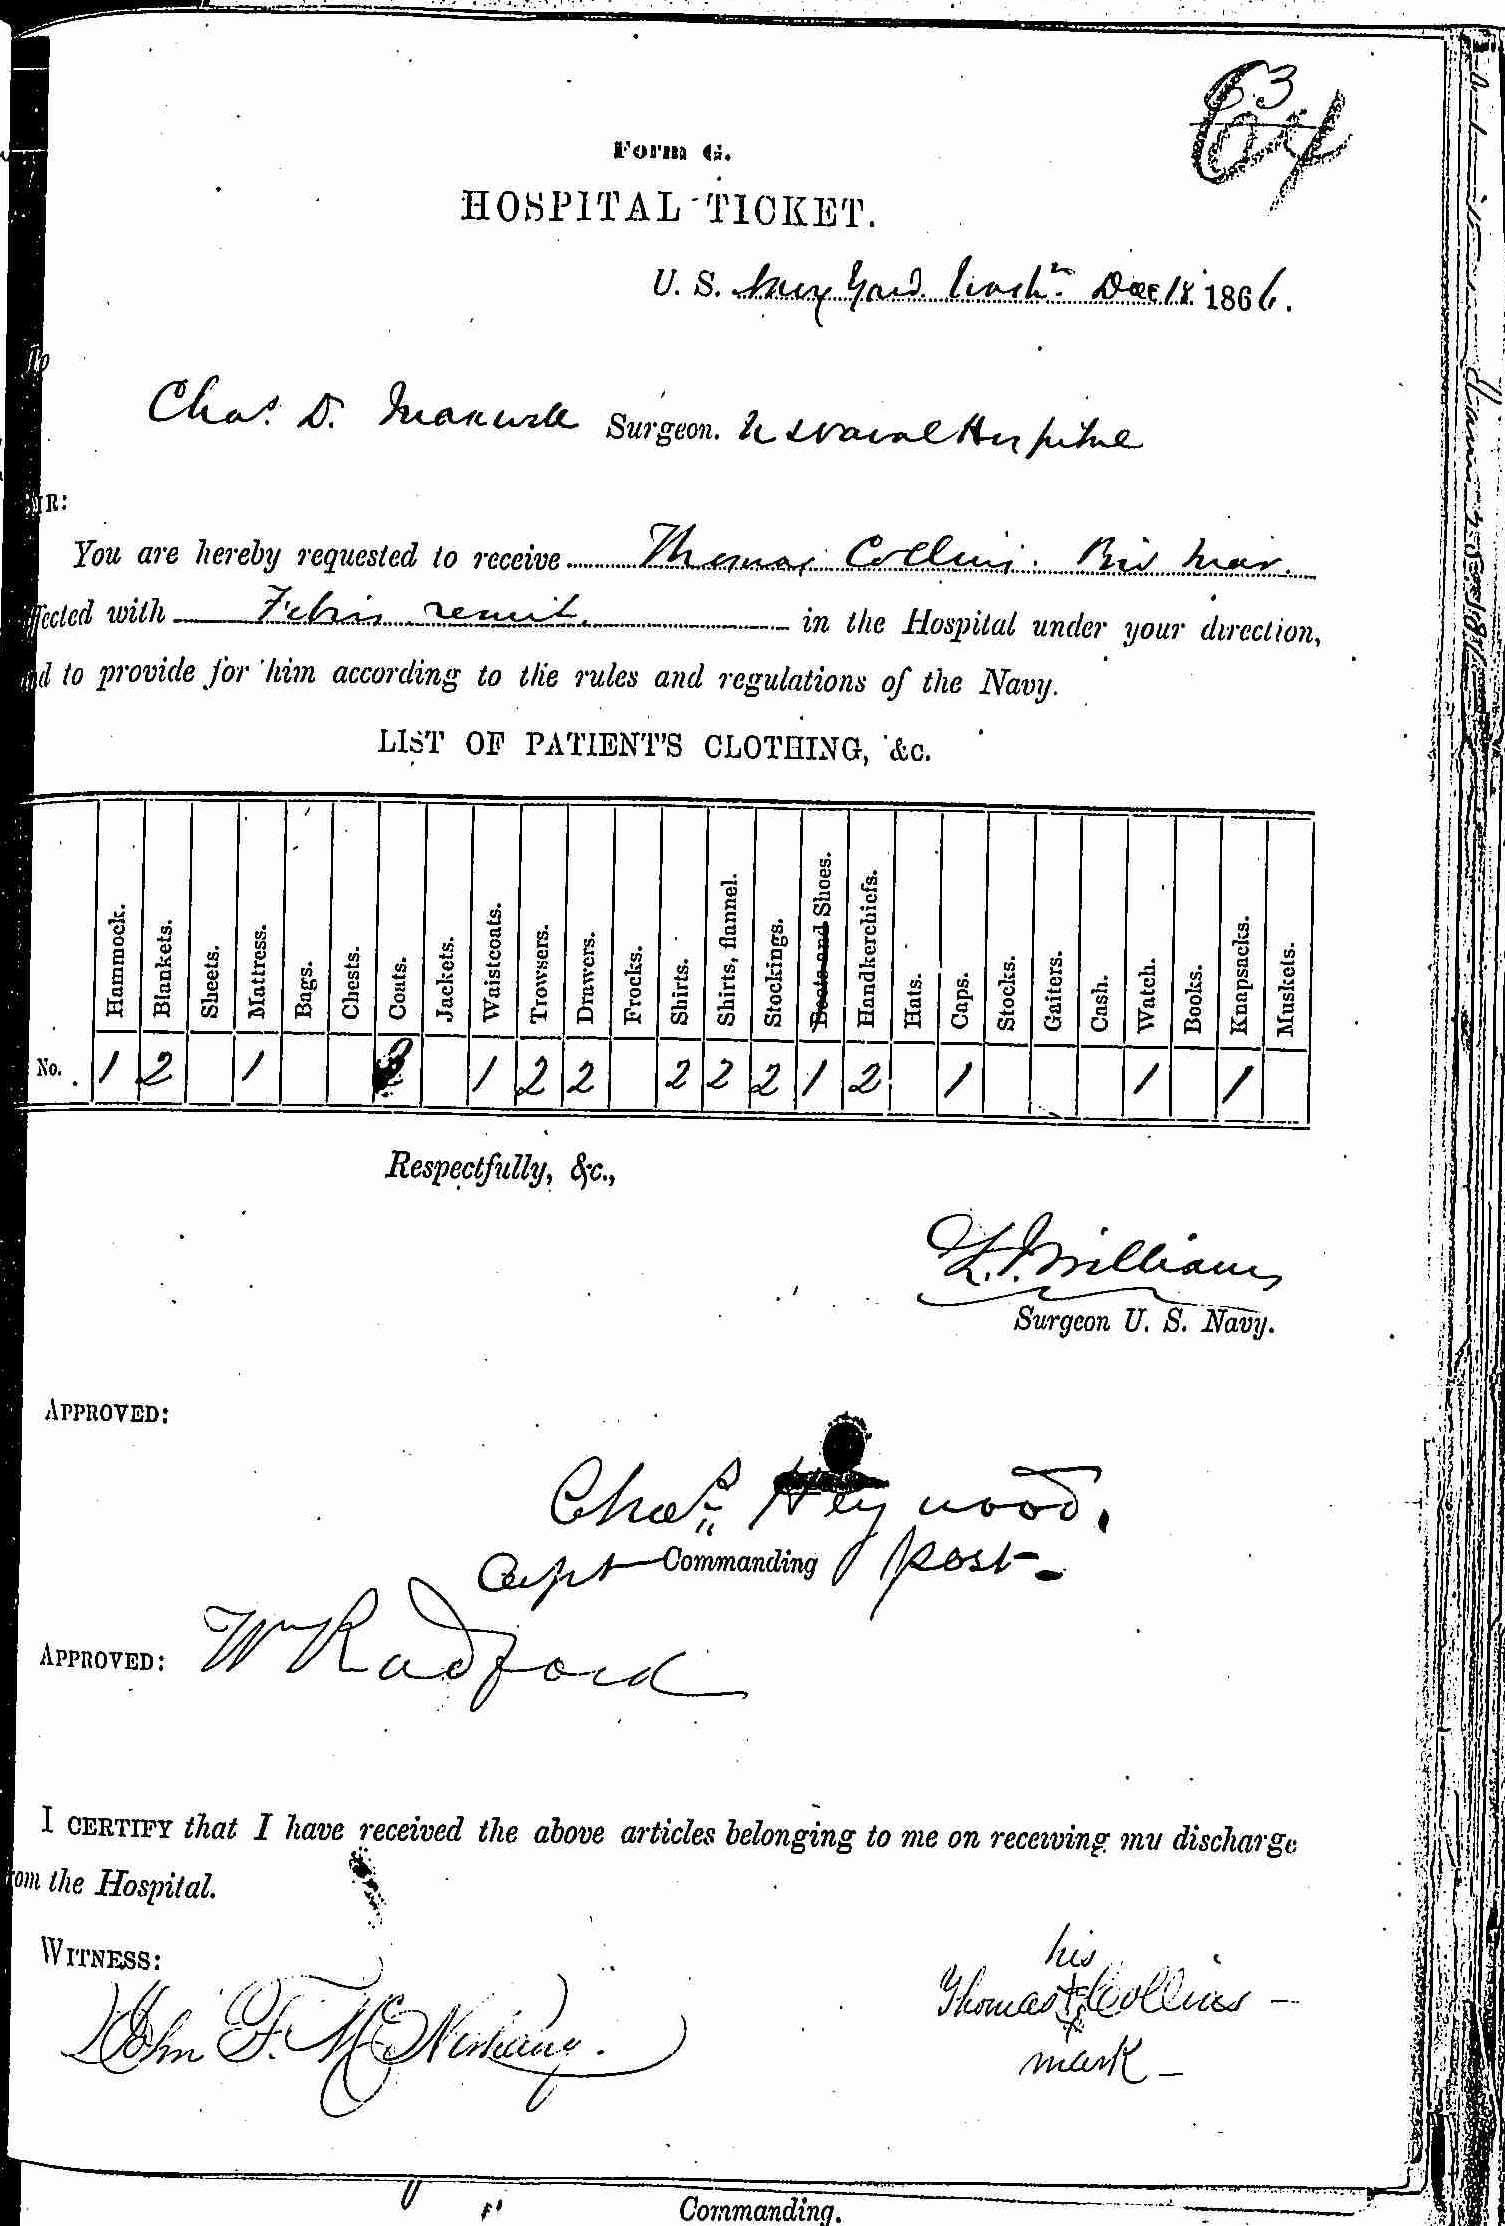 63
64
Form G.
HOSPITAL TICKET.
U. S. Navy Yard Washn. Dec 18 1866.
To
Chas. D. Maxwell Surgeon. U S Naval Hospital
SIR:
You are hereby requested to receive Thomas Collins. Priv Mar.
ffected with Febris remit. in the Hospital under your direction,
nd to provide for him according to the rules and regulations of the Navy.
LIST OF PATIENT'S CLOTHING, &c.
Hammock. Blankets. Sheets. Mattress. Bags. Chests. Coats. Jackets. Waistcoats. Trowsers. Drawers. Frocks. Shirts. Shirts, flannel. Stockings. Boots and Shoes. Handkerchiefs. Hats. Caps. Stocks. Gaiters. Cash. Watch. Books. Knapsacks. Muskets.
No. 1 2 1 1 2 2 2 2 2 1 2 1 1 1
Respectfully, &c.,
Williams
Surgeon U. S. Navy.
APPROVED:
Chas. Heywood.
Capt Commanding post-
APPROVED: Wm Radford
I CERTIFY that I have received the above articles belonging to me on receiving my discharge
rom the Hospital.
WITNESS:
his
Thomas + Collins -
mark -
John F.
Commanding.